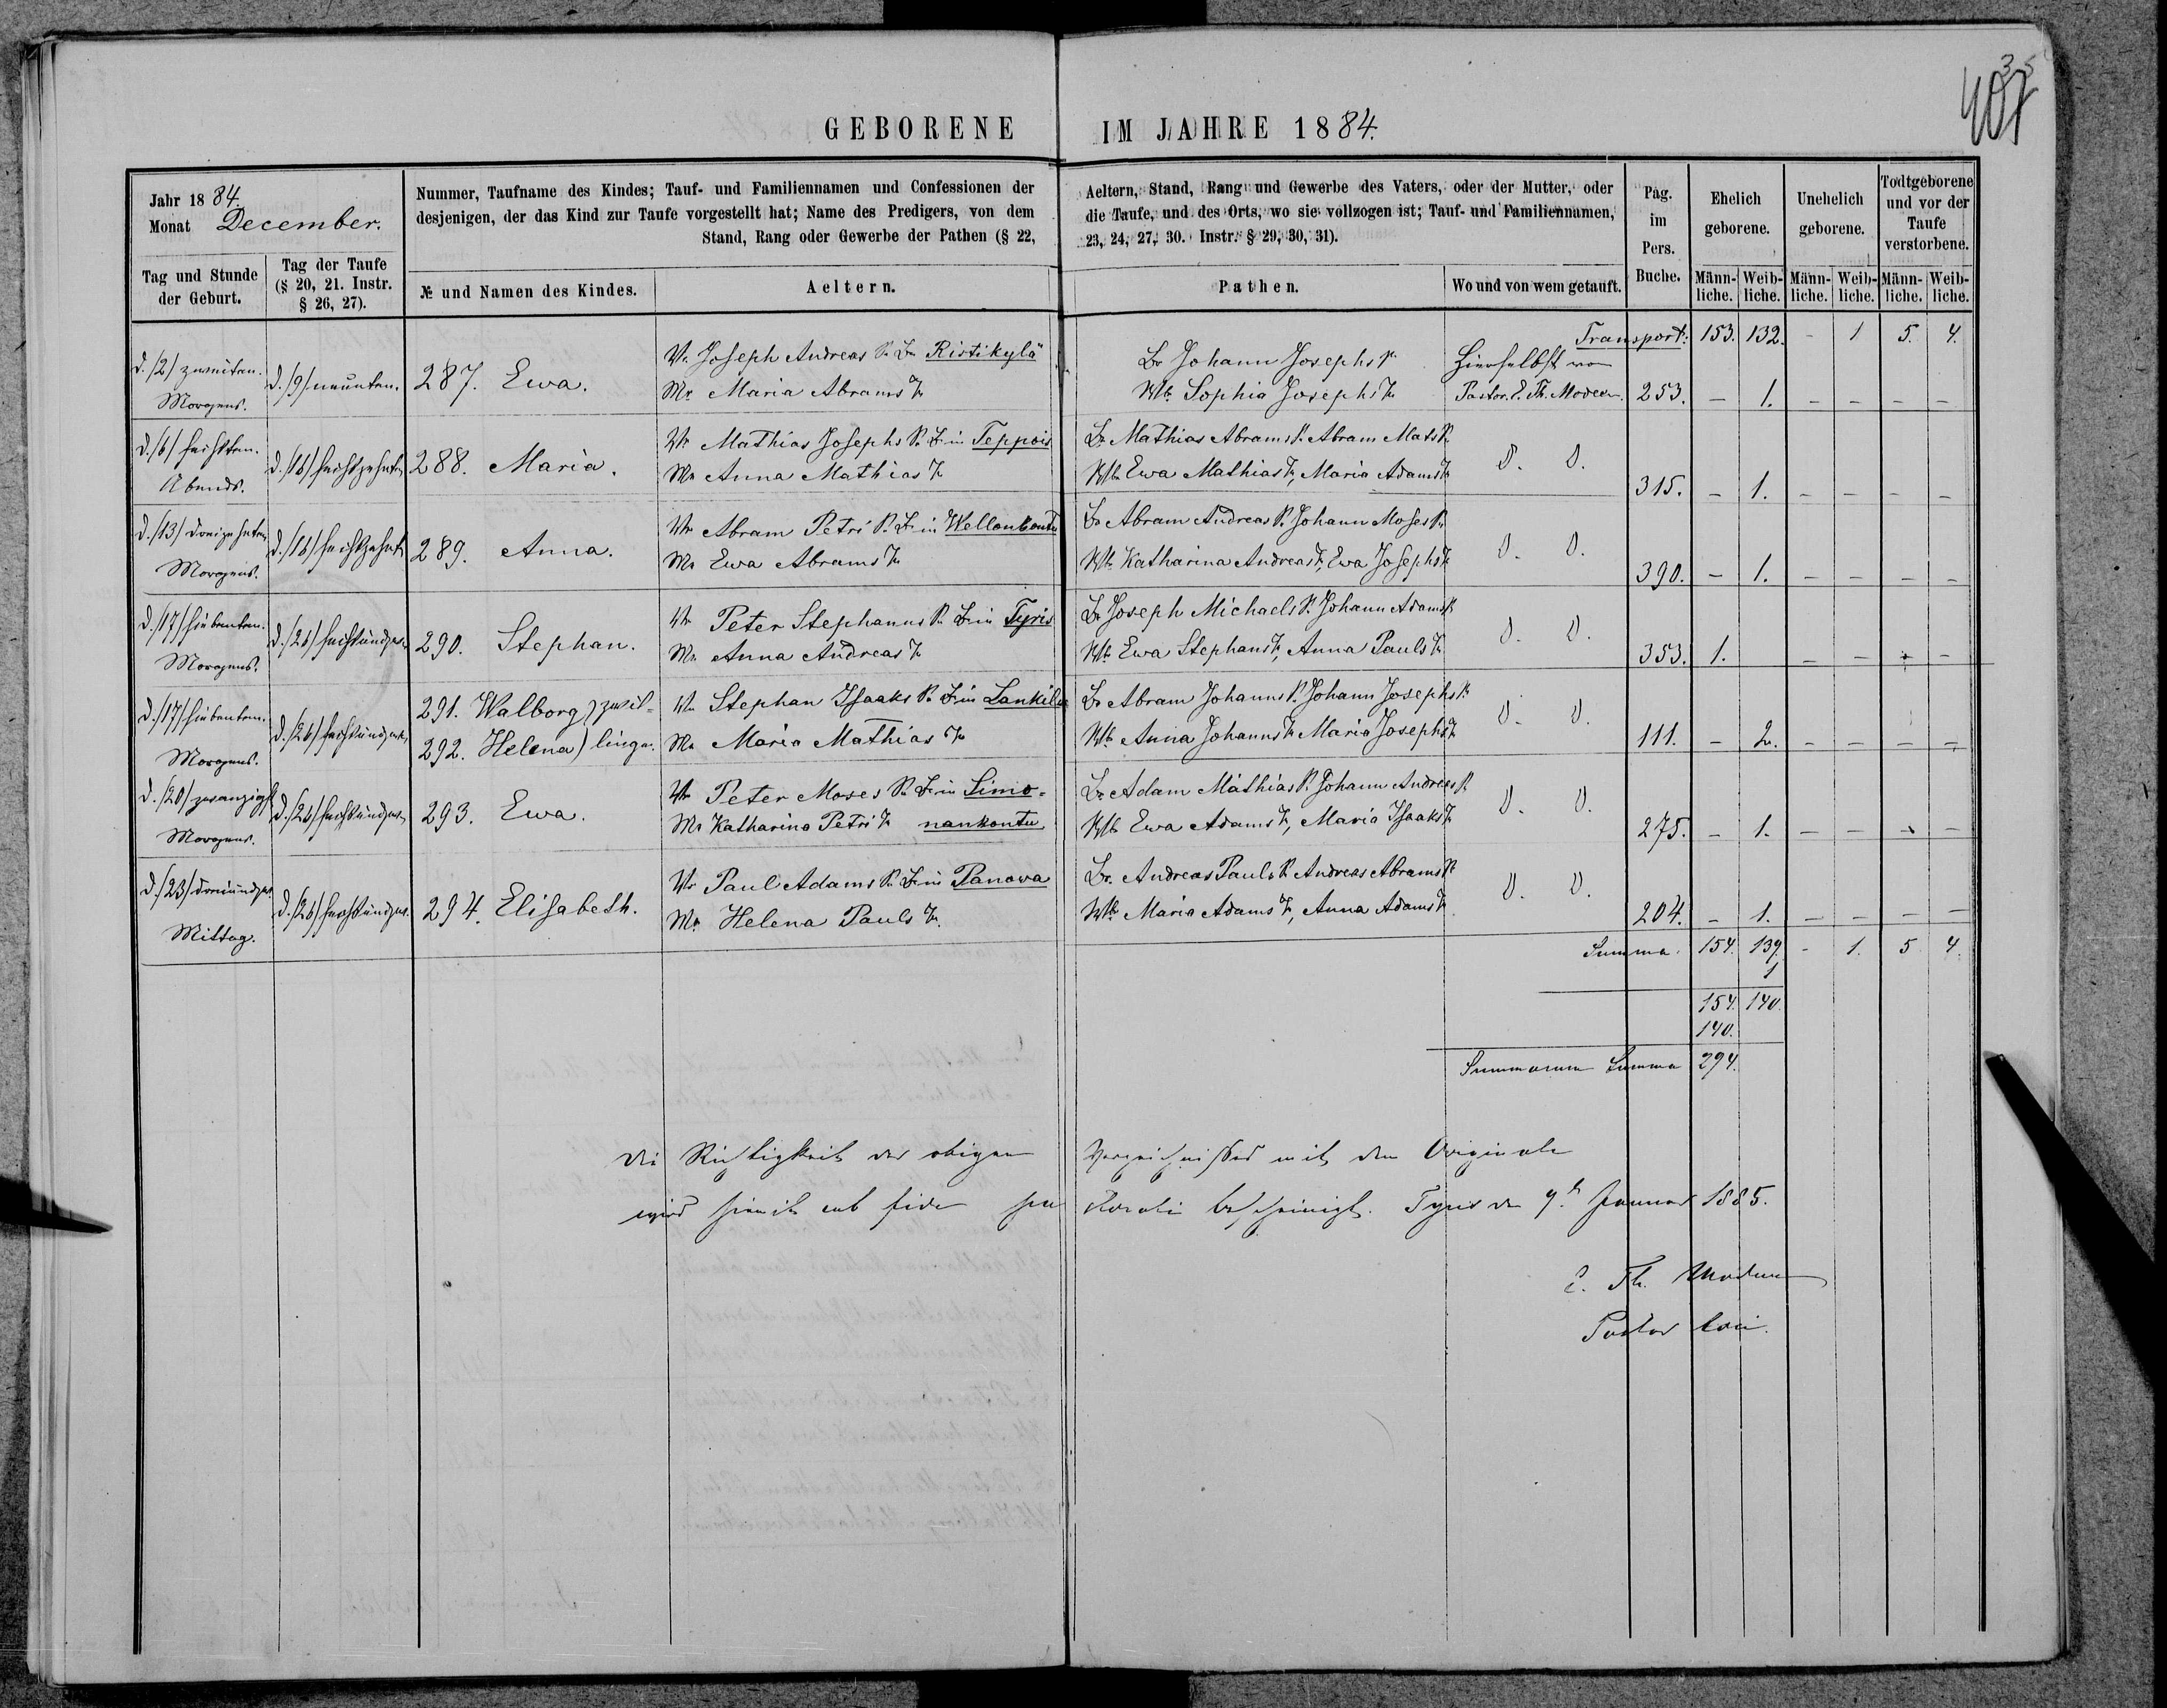 407
35
GEBORENE IM JAHRE 1884.
Jahr 1884.
Monat December.
Nummer, Taufname des Kindes; Tauf- und Familiennamen und Confessionen der
desjenigen, der das Kind zur Taufe vorgestellt hat; Name des Predigers, von dem
Stand, Rang oder Gewerbe der Pathen (§ 22,
Aeltern, Stand, Rang und Gewerbe des Vaters, oder der Mutter, oder
die Taufe, und des Orts, wo sie vollzogen ist; Tauf- und Familiennamen,
23, 24, 27, 30. Instr. § 29, 30, 31).
Pag.
im
Pers.
Buche.
Ehelich
geborene.
Unehelich
geborene.
Todtgeborene
und vor der
Taufe
verstorbene.
Tag und Stunde
der Geburt.
Tag der Taufe
(§ 20, 21. Instr.
§ 26, 27).
№ und Namen des Kindes.
Aeltern.
Pathen.
Wo und von wem getauft.
Männ-
liche.
Weib-
liche.
Männ-
liche.
Weib-
liche.
Männ-
liche.
Weib-
liche.
Transport: 153. 132. - 1 5. 4.
d. /2/ zweiten.
Morgens.
d. /9/ neunten.
287. Ewa.
Vr. Joseph Andreas S. Ristikylä
Mr. Maria Abrams T.
Br Johann Josephs S.
Wb. Sophia Josephs T.
Hierselbst von
Pastor E. Th. Modeen.
253. - 1. - - - -
d. /6/ sechsten.
Abends.
d. /16/ sechszehnten
288. Maria.
Vr Mathias Josephs S. in Teppois
Mr Anna Mathias T.
Br Mathias Abrams S. Abram Mats S.
Wb Ewa Mathias T., Maria Adams T.
D. D.
315. - 1. - - - -
d. /13/ dreizehnten
Morgens.
d. /16/ sechszehnt
289. Anna.
Vr Abram Petri S. in Wellonkontu
Mr Ewa Abrams T.
Br Abram Andreas S. Johann Moses S.
Wb Katharina Andreas T., Ewa Josephs T.
D. D.
390. - 1. - - - -
d. /17/ siebenten.
Morgens.
d. /26/ sechsundzw.
290. Stephan.
Vr Peter Stephanus S. in Tyris
Mr. Anna Andreas T.
Br Joseph Michaels S. Johann Adams S.
Wb Ewa Stephans T., Anna Pauls T.
D. D.
353. 1. - - - -
d. /17/ siebenten.
Morgens.
d. /26/ sechsundzw.
291. Walborg } zwil-
292. Helena } linge.
Vr Stephan Isaaks S. in Lankila
Mr Maria Mathias T.
Br Abram Johanns S. Johann Josephs S.
Wb Anna Johanns T. Maria Josephs T.
D. D.
111. - 2. - - - -
d. /20/ zwanzigst
Morgens.
d. /26/ sechsundzw.
293. Ewa.
Vr Peter Moses S. in Simo-
Mr Katharina Petri T. nankontu
Br Adam Mathias S. Johann Andreas S.
Wb Ewa Adams T., Maria Isaaks T.
D. D.
275. - 1. - - - -
d. /23/ dreiundzw.
Mittag.
d. /26/ sechsundzw.
294. Elisabeth.
Vr Paul Adams S. in Panowa
Mr Helena Pauls T.
Br. Andreas Pauls S. Andreas Abrams S.
Wb Maria Adams T., Anna Adams T.
D. D.
204. - 1. - - - -
Summa. 154. 139. - 1. 5 4.
1
154. 140.
140.
Summarum Summa 294.
Die Richtigkeit des obigen Verzeichnisses mit dem Originale
wird hiemit sub fide pastorali bescheinigt. Tyris den 9. Januar 1885.
E. Th. Modeen
Pastor loci.